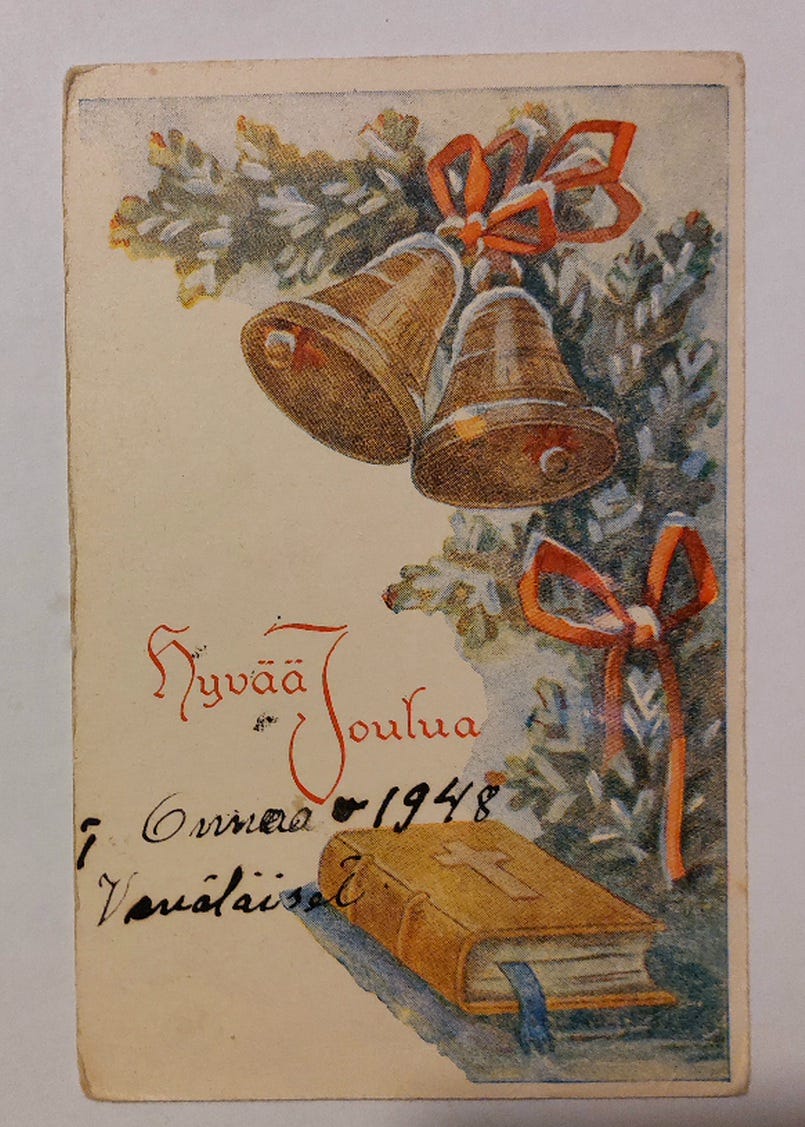 Hyvää
Joulua
Onnea v 1948